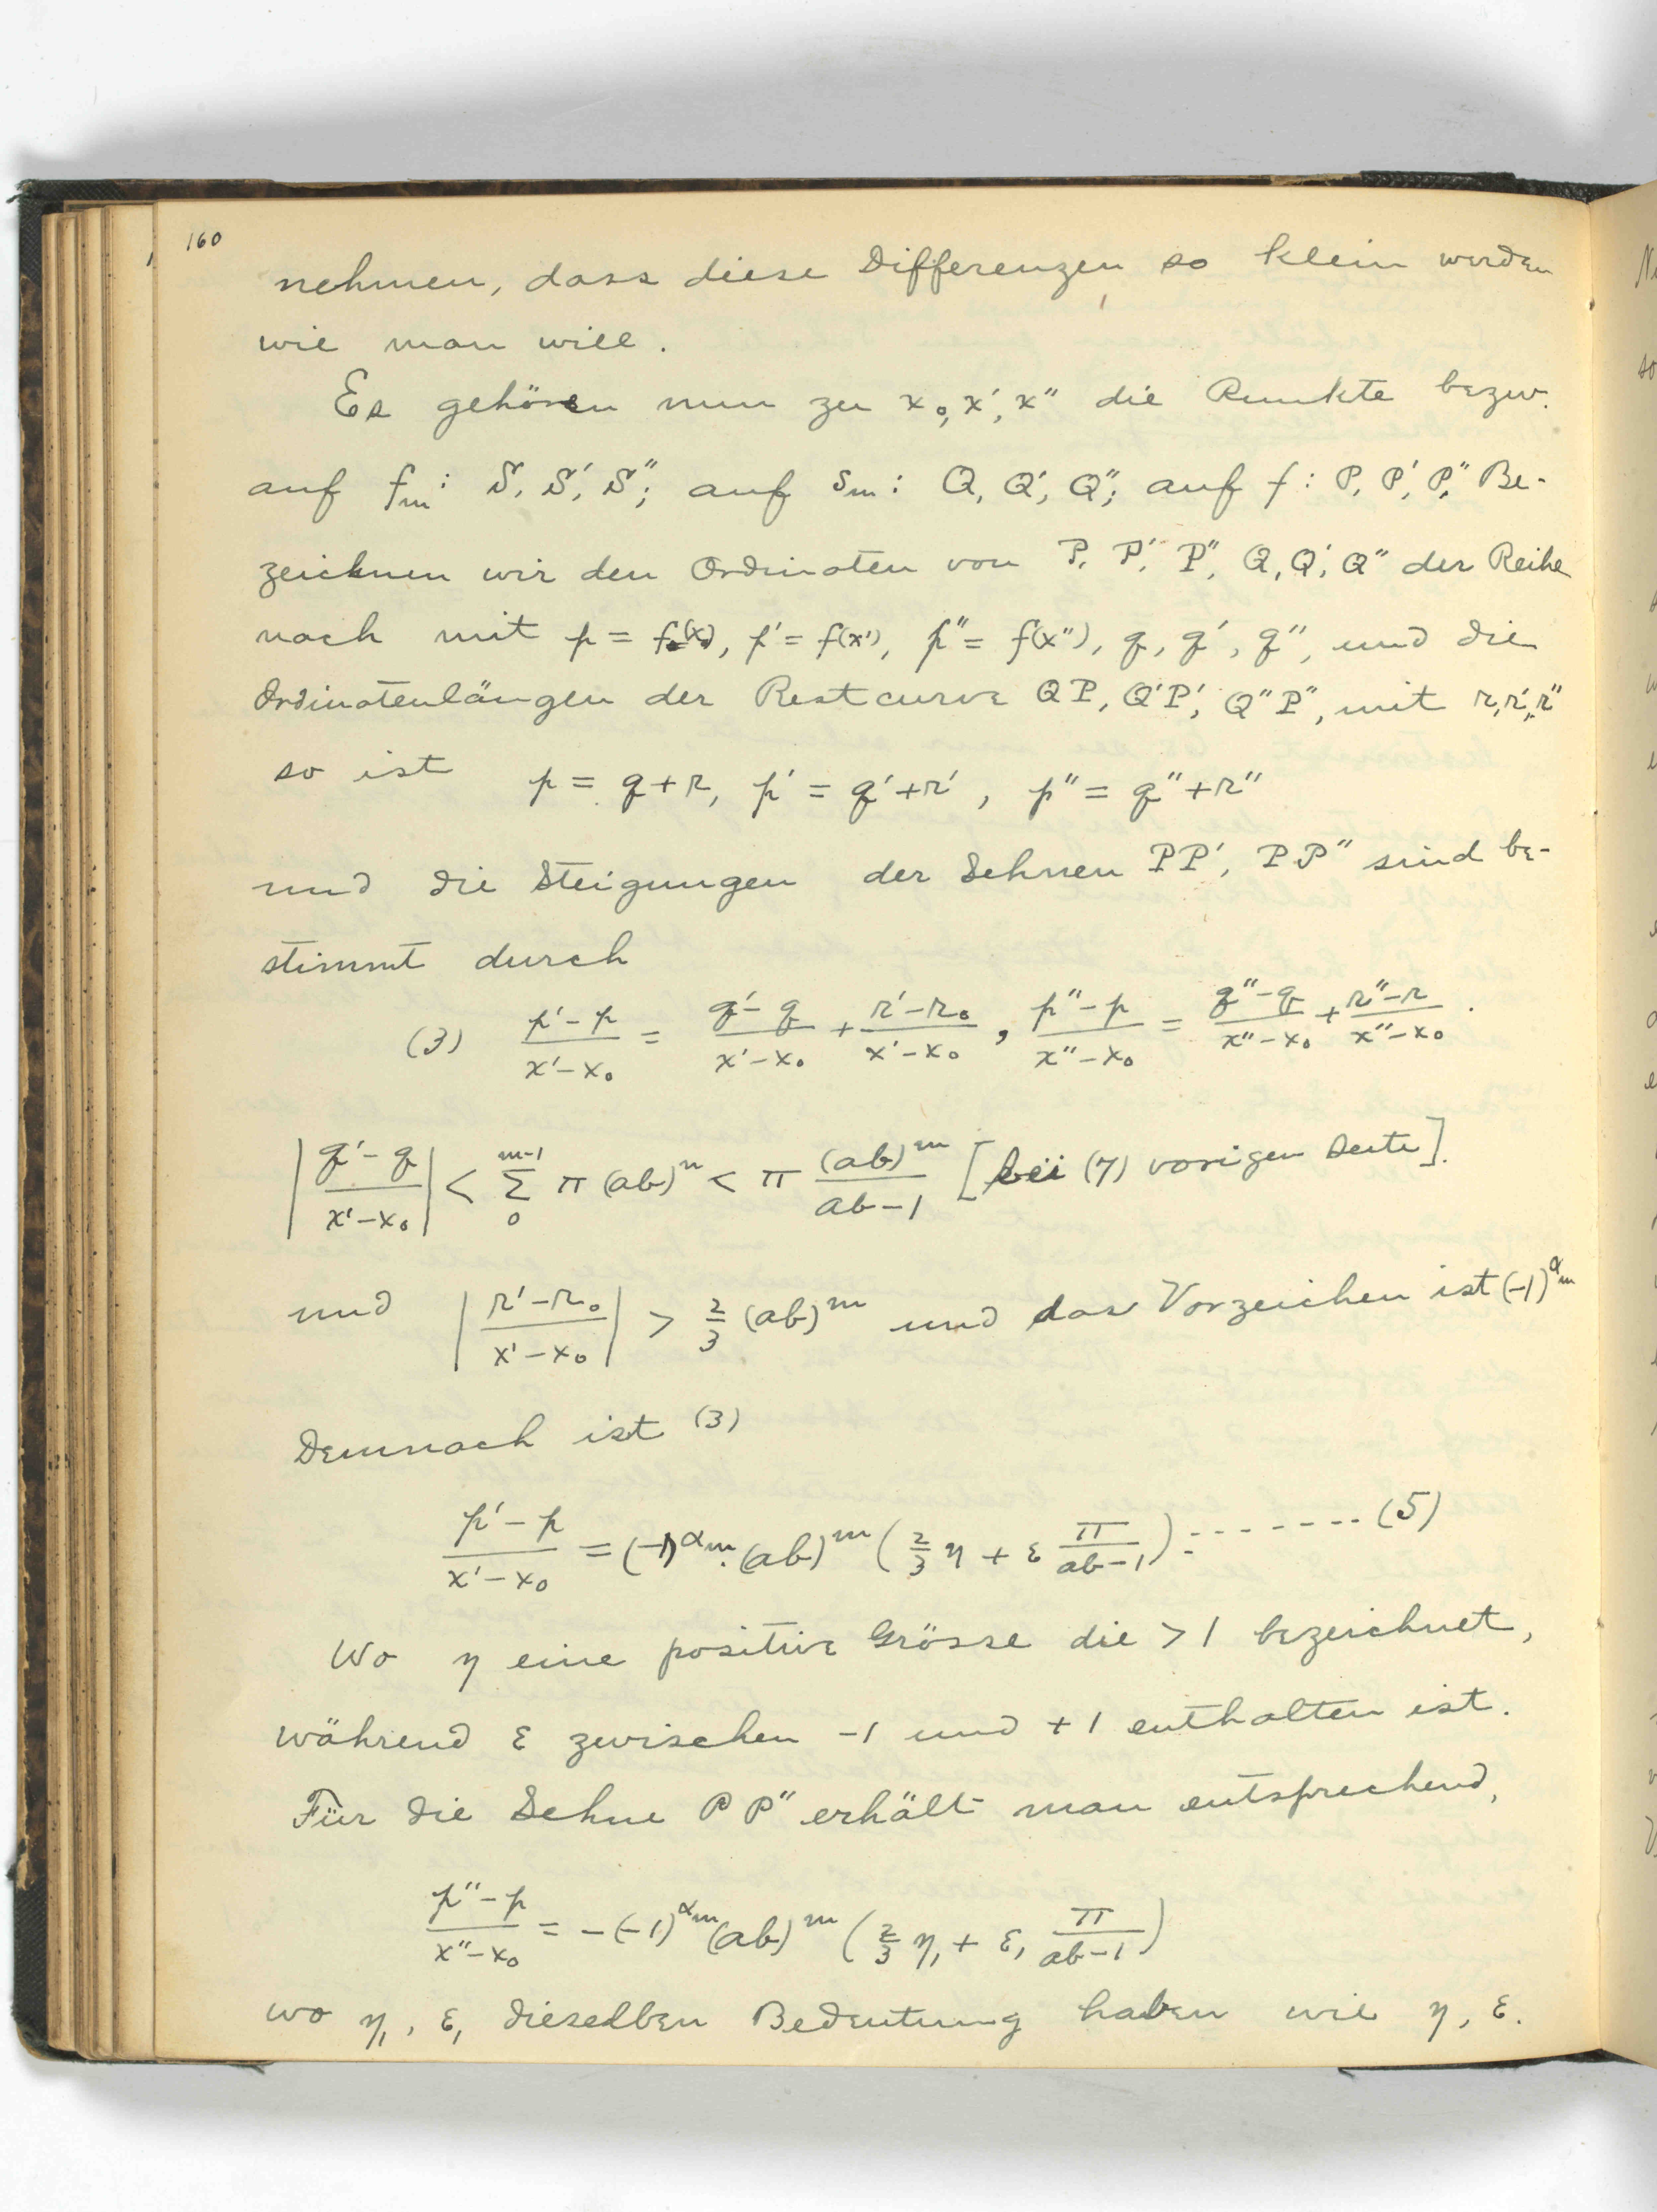 160
nehmen, dass diese Differenzen so klein werden
wie man will.
Es gehören nun zu x₀, x′, x″ die Punkte bezw.
auf fₘ: S, S′, S″; auf sₘ: Q, Q′, Q″; auf f: P, P′, P″. Be-
zeichnen wir den Ordinaten von P, P′, P″, Q, Q′, Q″ der Reihe
nach mit p = f(x₀), p′ = f(x′), p″ = f(x″), q, q′, q″, und die
Ordinatenlängen der Restcurve QP, Q′P′, Q″P″, mit r, r′, r″
so ist p = q + r, p′ = q′ + r′, p″ = q″ + r″
und die Steigungen der Sehnen PP′, PP″ sind be-
stimmt durch
(3) (p′ − p)/(x′ − x₀) = (q′ − q)/(x′ − x₀) + (r′ − r₀)/(x′ − x₀), (p″ − p)/(x″ − x₀) = (q″ − q)/(x″ − x₀) + (r″ − r)/(x″ − x₀).
|(q′ − q)/(x′ − x₀)| < Σ₀^{m−1} π(ab)ⁿ < π (ab)ᵐ/(ab − 1) [bei (7) vorigen Seite].
und |(r′ − r₀)/(x′ − x₀)| > 2/3 (ab)ᵐ und das Vorzeichen ist (−1)^{αₘ}
Demnach ist (3)
(p′ − p)/(x′ − x₀) = (−1)^{αₘ}·(ab)ᵐ (2/3 η + ε π/(ab − 1)): - - - - - - - (5)
Wo η eine positive Grösse die > 1 bezeichnet,
während ε zwischen −1 und +1 enthalten ist.
Für die Sehne PP″ erhält man entsprechend,
(p″ − p)/(x″ − x₀) = −(−1)^{αₘ}(ab)ᵐ (2/3 η₁ + ε₁ π/(ab − 1))
wo η₁, ε₁ dieselben Bedeutung haben wie η, ε.